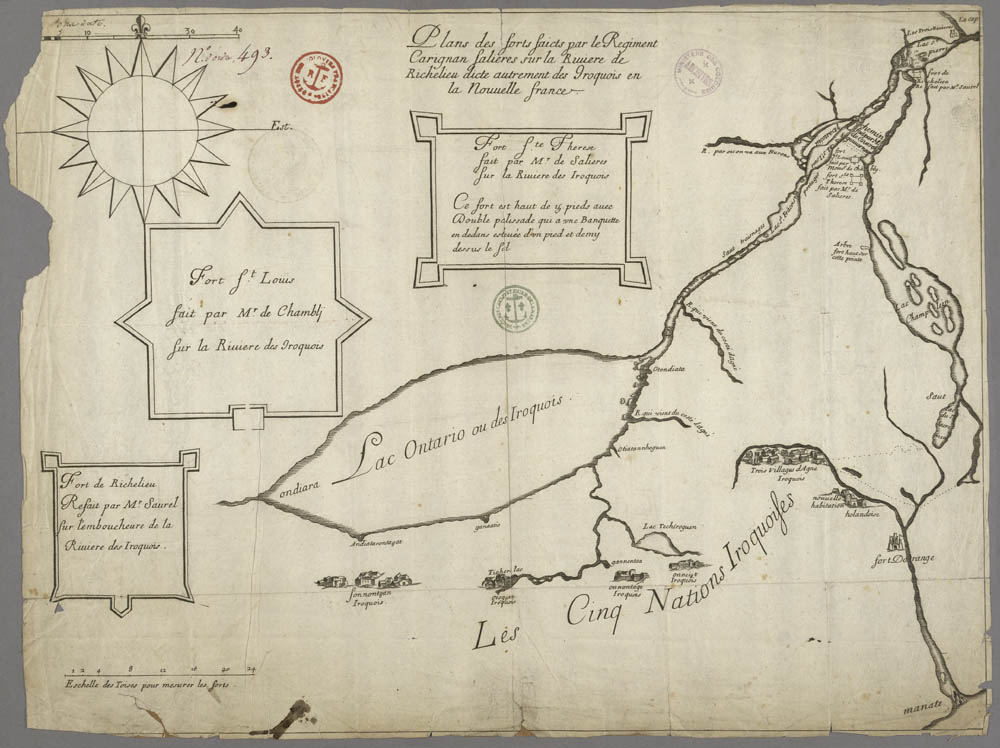 10 30 40
493.
Plans des forts faicts par le Regiment
Carignan salieres sur la Riuiere de
Richelieu dicte autrement des Iroquois en
la Nouuelle france
Est.
Fort s.te Therese
fait par M.r de Salieres
sur la Riuiere des Iroquois
Ce fort est haut de 15 pieds auec
Double palissade qui a vne Banquette
en dedans esleuée d'vn pied et demy
dessus le sol
Fort s.t Loüis
fait par M.r de Chamblj
sur la Riuiere des Iroquois
Fort de Richelieu
Refait par M.r Saurel
sur l'emboucheure de la
Riuiere des Iroquois.
1 2 4 8 12 16 20 24
Eschelle des Toises pour mesurer les forts.
Le cap
Les Trois Riuieres
Lac s.t
pierre
fort de
Richelieu
Refait par M.r Saurel
R. par ou on va aux Hurons
Montreal
Chemin
fort s.t Louis
fait par
Mons.r de Chambly.
fort s.te
Therese
fait par M.r de
Salieres.
Saut
Arbre
fort haut sur
cette pointe
Lac
Champlain
R. qui vient du costé d'Agné
Otondiata
R. qui vient du costé d'Agné
Otiatannheguen
Lac Ontario ou des Iroquois.
ondiara
Andiatarontagat
Saut
Trois Villages d'Agné
Iroquois
nouuelle
habitation
holandoise
fort D'orange
Lac Techiroguen
gannentaa
onneiyt
Iroquois
onnontagé
Iroquois
Iroquois
sonnontöan
Iroquois
Les Cinq Nations Iroquoises
manate